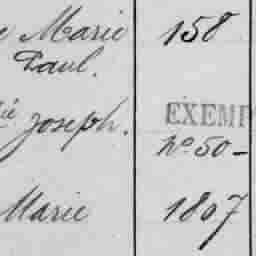 Marie 158
Paul.
Joseph. EXEMP
no 50 -
Marie 1807